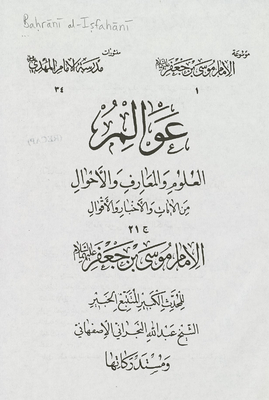 Bahrānī al-Iṣfahānī
موسوعة
الإمام موسى بن جعفر عليهما السلام
١
منشورات
مدرسة الإمام المهدي
٣٤
عوالم
العلوم والمعارف والأحوال
من الآيات والأخبار والأقوال
ج ٢١
الإمام موسى بن جعفر عليهما السلام
للمحدث الكبير المتتبع الخبير
الشيخ عبدالله البحراني الإصفهاني
ومستدركاتها